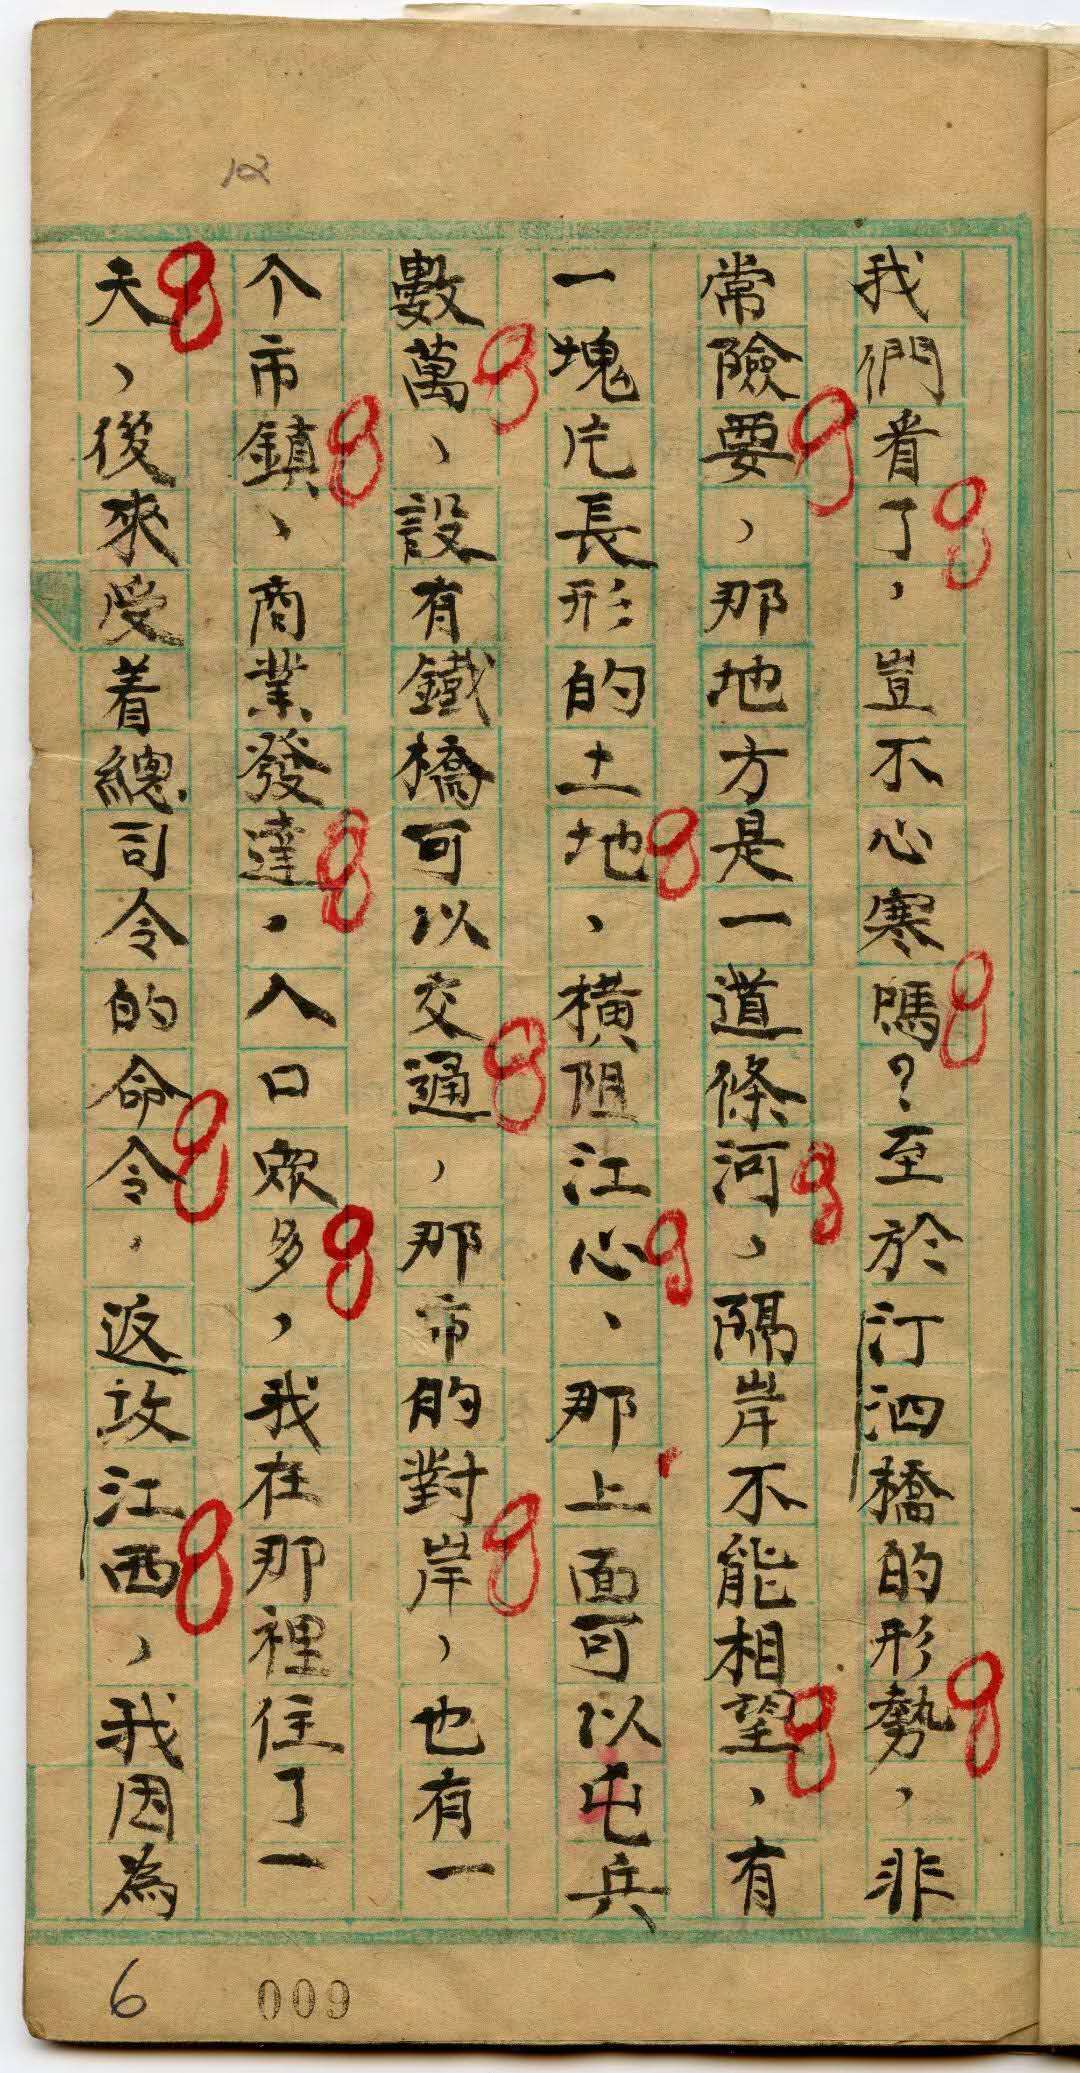 12
我們看了，豈不心寒嗎？至於汀泗橋的形勢，非
常險要，那地方是一道條河，隔岸不能相望，有
一塊片長形的土地，橫阻江心、那上面可以屯兵
數萬、設有鐵橋可以交通，那市的對岸，也有一
个市鎮、商業發達，入口眾多，我在那裡住了一
天，後來受着總司令的命令，返攻江西，我因為
6
009